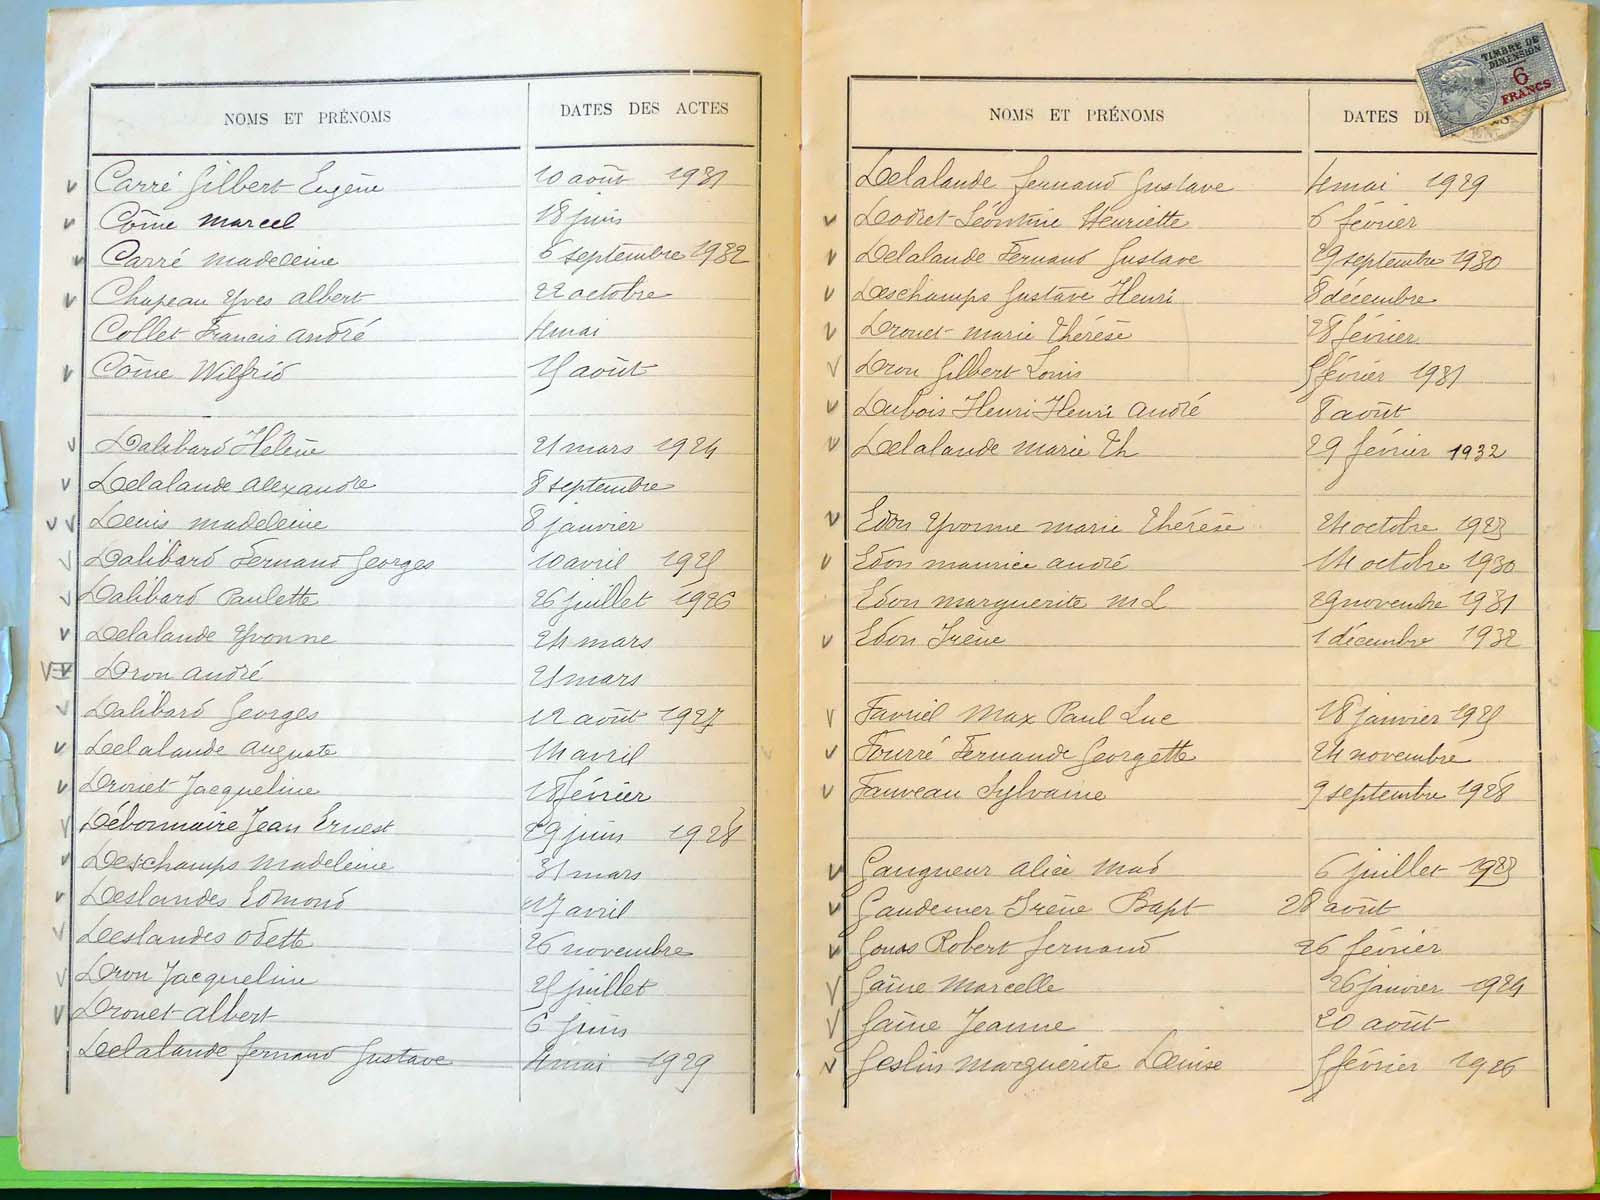 NOMS ET PRÉNOMS DATES DES ACTES
Carré Gilbert Eugène 10 août 1931
Côme Marcel 18 juin
Carré Madeleine 6 septembre 1932
Chapeau Yves Albert 22 octobre
Collet Francis André 4 mai
Côme Wilfrid 15 août
Dalibard Hélène 21 mars 1924
Delalande Alexandre 8 septembre
Denis Madeleine 8 janvier
Dalibard Fernand Georges 10 avril 1925
Dalibard Paulette 26 juillet 1926
Delalande Yvonne 24 mars
Dron André 21 mars
Dalibard Georges 12 août 1927
Delalande Auguste 14 avril
Drouet Jacqueline 18 février
Débonnaire Jean Ernest 29 juin 1928
Deschamps Madeleine 31 mars
Deslandes Edmond 17 avril
Deslandes Odette 26 novembre
Dron Jacqueline 25 juillet
Drouet Albert 6 juin
Delalande Fernand Gustave 4 mai 1929
TIMBRE DE
DIMENSION
6
FRANCS
NOMS ET PRÉNOMS DATES
Delalande Fernand Gustave 4 mai 1929
Dodret Léontine Henriette 6 février
Delalande Fernand Gustave 29 septembre 1930
Deschamps Gustave Henri 8 décembre
Drouet Marie Thérèse 28 février
Dron Gilbert Louis 5 février 1931
Dubois Henri Henri André 8 août
Delalande Marie Th 29 février 1932
Edon Yvonne Marie Thérèse 24 octobre 1923
Edon Maurice André 14 octobre 1930
Edon Marguerite M L 29 novembre 1931
Edon Irène 1 décembre 1932
Favriel Max Paul Luc 18 janvier 1925
Fourré Fernande Georgette 24 novembre
Fauveau Sylvaine 9 septembre 1928
Gaugneur Alice Mad 6 juillet 1923
Gaudemer Irène Bapt 28 août
Gouas Robert Fernand 26 février
Gaîne Marcelle 26 janvier 1924
Gaîne Jeanne 20 août
Geslin Marguerite Denise 5 février 1926